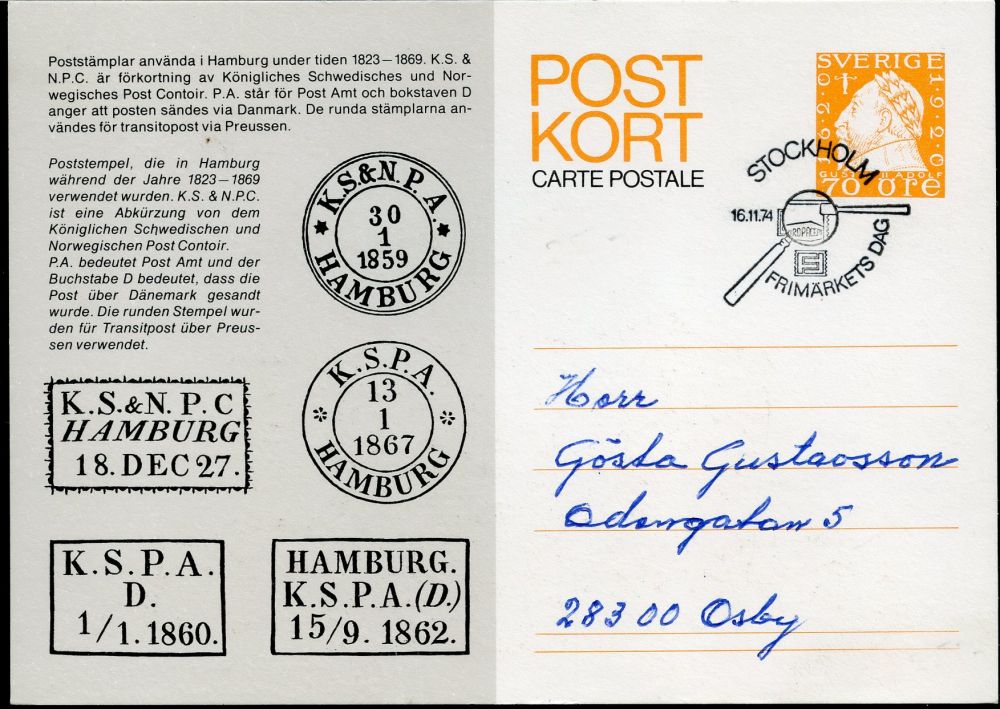 Poststämplar använda i Hamburg under tiden 1823–1869. K.S. &
N.P.C. är förkortning av Königliches Schwedisches und Nor-
wegisches Post Contoir. P.A. står för Post Amt och bokstaven D
anger att posten sändes via Danmark. De runda stämplarna an-
vändes för transitopost via Preussen.
Poststempel, die in Hamburg
während der Jahre 1823–1869
verwendet wurden. K.S. & N.P.C.
ist eine Abkürzung von dem
Königlichen Schwedischen und
Norwegischen Post Contoir.
P.A. bedeutet Post Amt und der
Buchstabe D bedeutet, dass die
Post über Dänemark gesandt
wurde. Die runden Stempel wur-
den für Transitpost über Preus-
sen verwendet.
K.S.&N.P.A.
30
1
1859
HAMBURG
K.S.P.A.
13
1
1867
HAMBURG
K.S.&N.P.C
HAMBURG
18.DEC 27.
K.S.P.A.
D.
1/1.1860.
HAMBURG.
K.S.P.A.(D.)
15/9.1862.
POST
KORT
CARTE POSTALE
SVERIGE
1920
GUSTAF II ADOLF
70 ÖRE
STOCKHOLM
16.11.74
FRIMÄRKETS DAG
Herr
Gösta Gustavsson
Odengatan 5
283 00 Osby